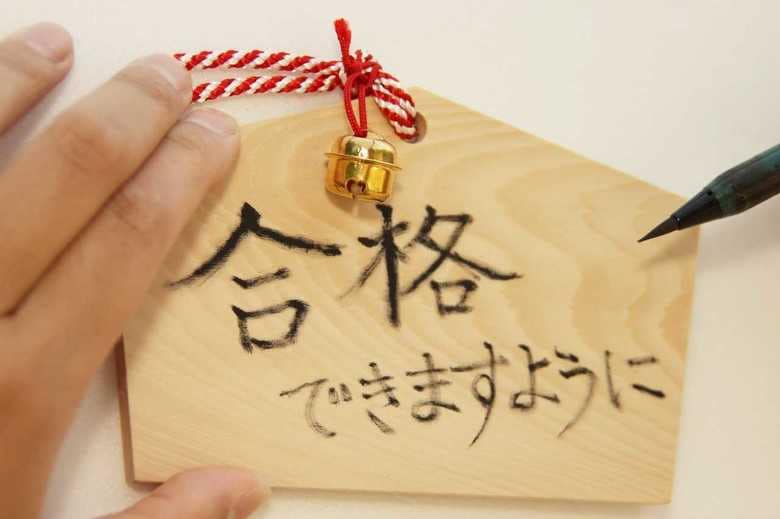 合格
できますように